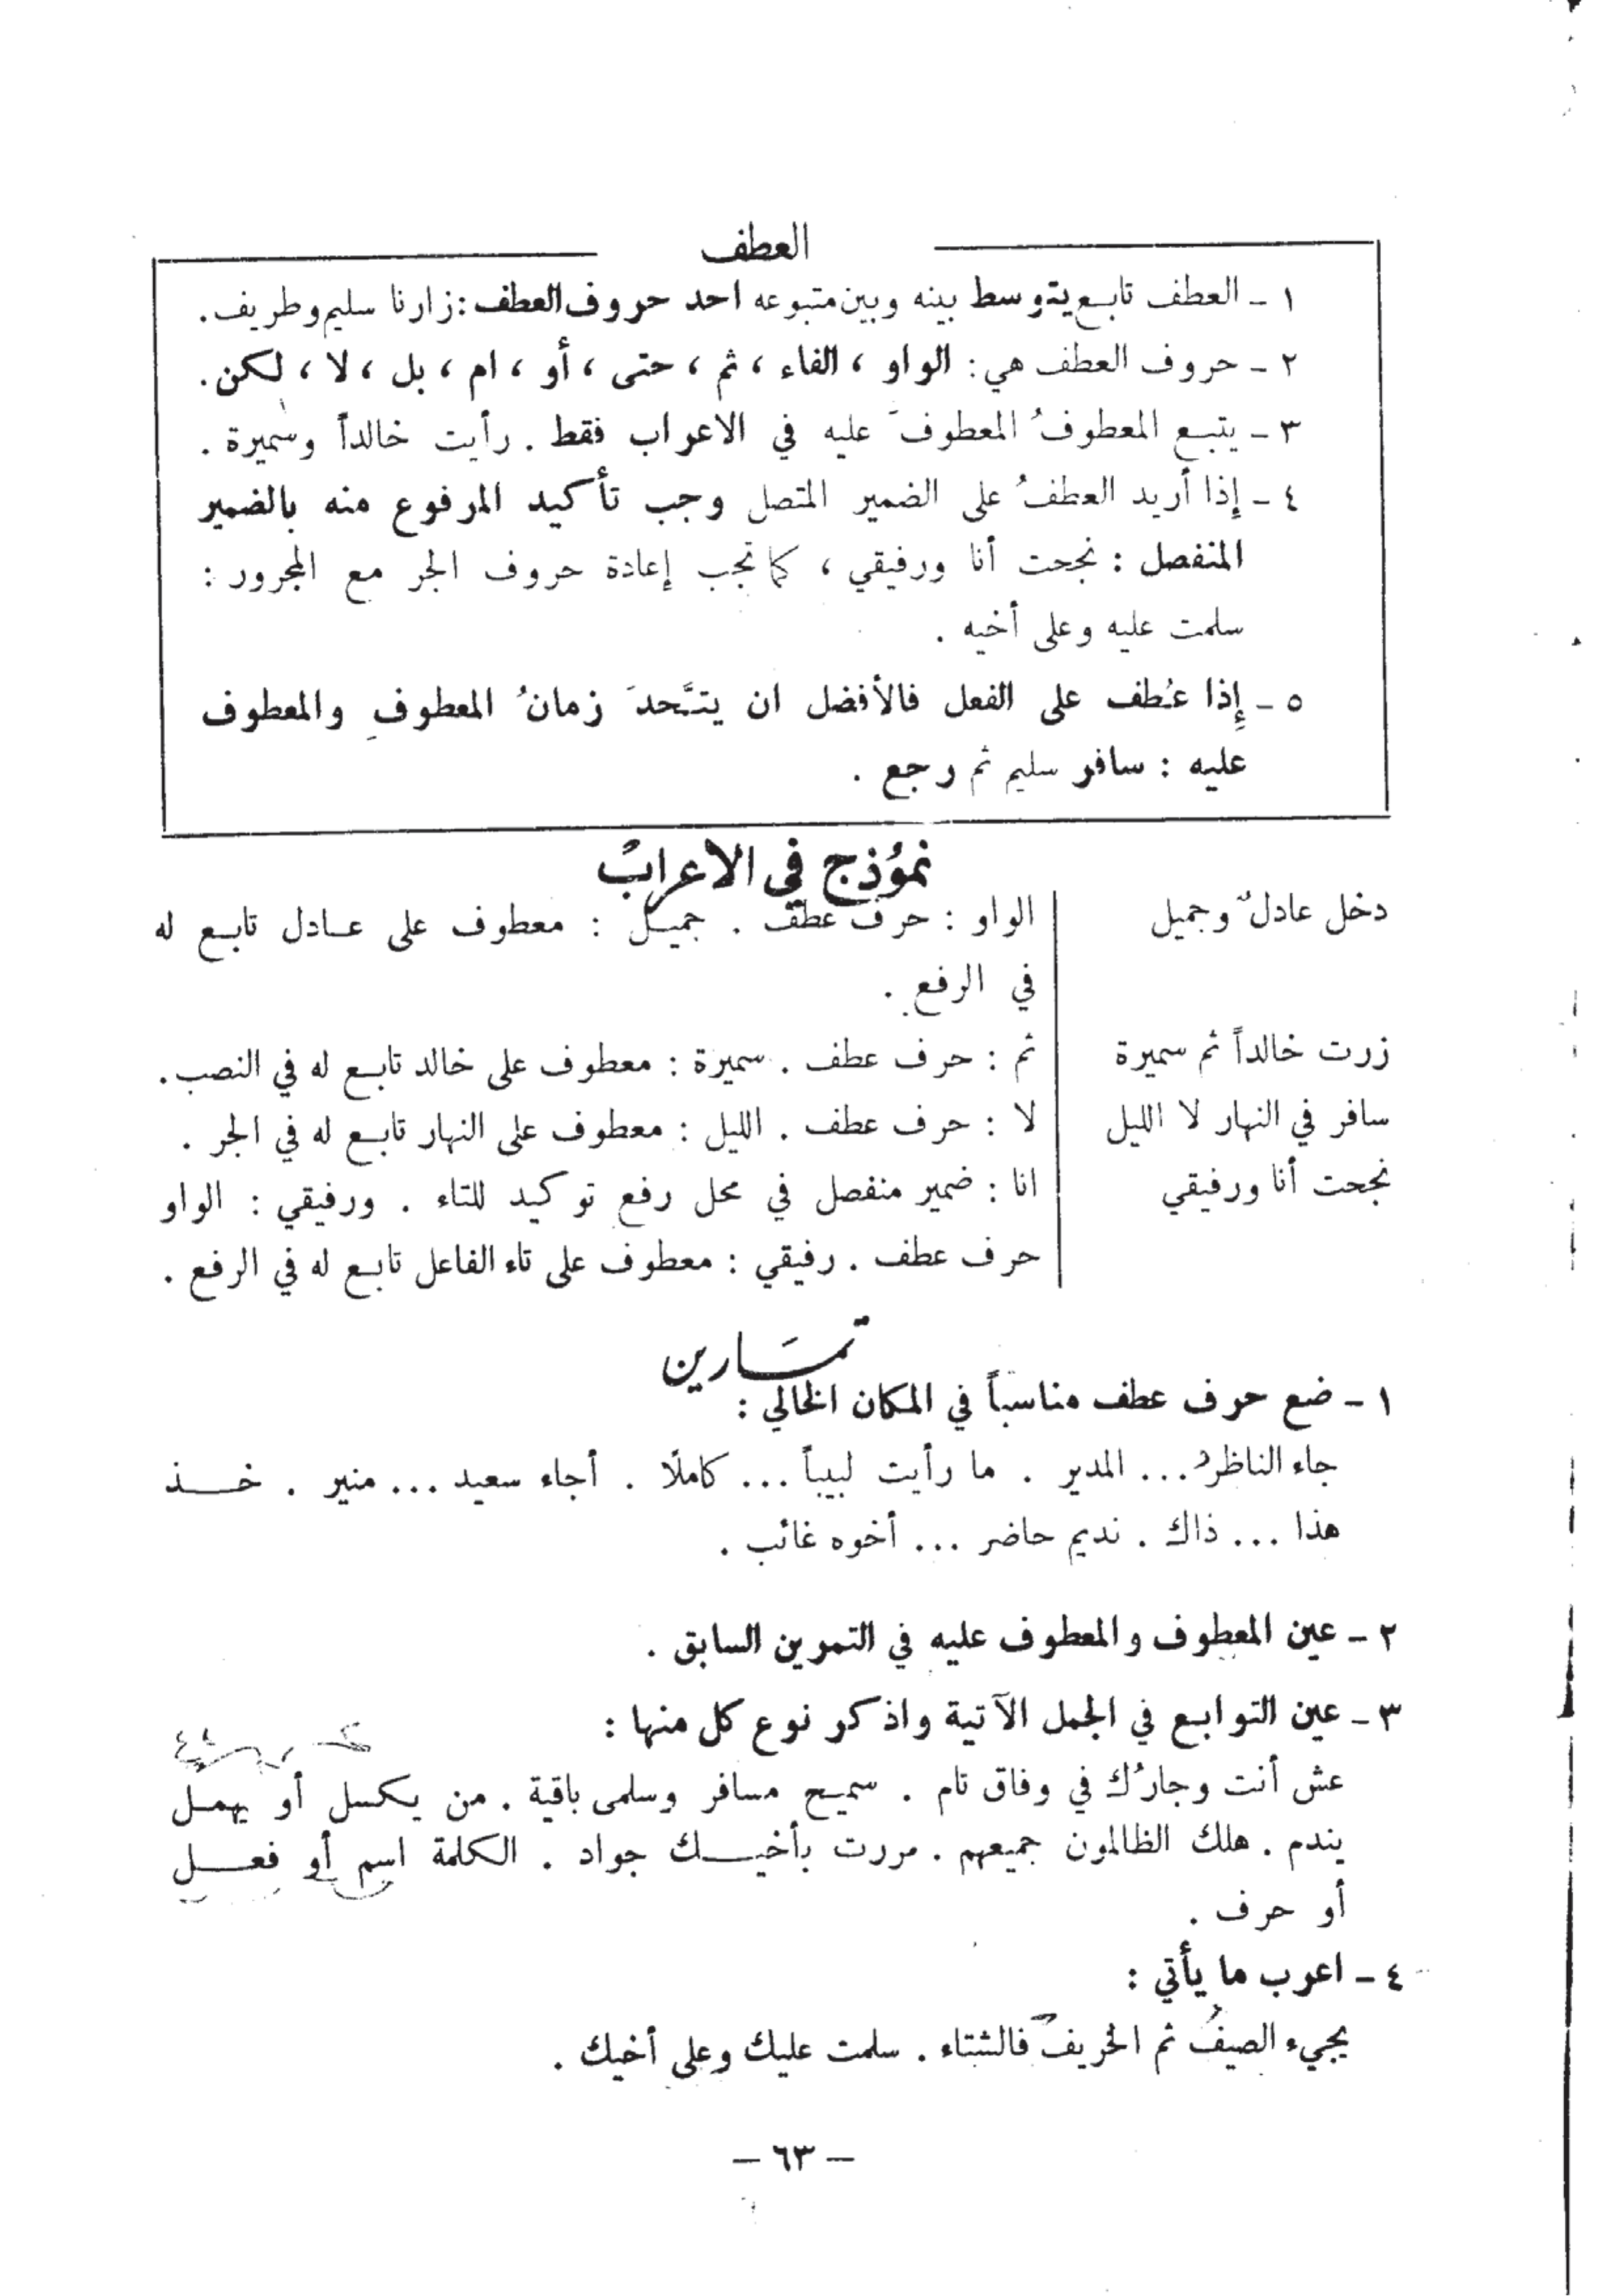 العطف
١ - العطف تابع يتوسط بينه وبين متبوعه احد حروف العطف : زارنا سليم وطريف .
٢ - حروف العطف هي : الواو ، الفاء ، ثم ، حتى ، أو ، ام ، بل ، لا ، لكن .
٣ - يتبع المعطوفُ المعطوفَ عليه في الاعراب فقط . رأيت خالداً وسميرة .
٤ - إذا أريد العطفُ على الضمير المتصل وجب تأكيد المرفوع منه بالضمير
المنفصل : نجحت أنا ورفيقي ، كما تجب إعادة حروف الجر مع المجرور :
سلمت عليه وعلى أخيه .
٥ - إِذا عُطف على الفعل فالأفضل ان يتَّحدَ زمانُ المعطوفِ والمعطوف
عليه : سافر سليم ثم رجع .
نموُذج في الاعرابُ
دخل عادلٌ وجميل الواو : حرف عطف . جميل : معطوف على عادل تابع له
في الرفع .
زرت خالداً ثم سميرة ثم : حرف عطف . سميرة : معطوف على خالد تابع له في النصب .
سافر في النهار لا الليل لا : حرف عطف . الليل : معطوف على النهار تابع له في الجر .
نجحت أنا ورفيقي انا : ضمير منفصل في محل رفع توكيد للتاء . ورفيقي : الواو
حرف عطف . رفيقي : معطوف على تاء الفاعل تابع له في الرفع .
تمَارين
١ - ضع حرف عطف مناسباً في المكان الخالي :
جاء الناظرُ ... المدير . ما رأيت لبيباً ... كاملًا . أجاء سعيد ... منير . خذ
هذا ... ذاك . نديم حاضر ... أخوه غائب .
٢ - عين المعطوف والمعطوف عليه في التمرين السابق .
٣ - عين التوابع في الجمل الآتية واذكر نوع كل منها :
عش أنت وجارُك في وفاق تام . سميح مسافر وسلمى باقية . من يكسل أو يهمل
يندم . هلك الظالمون جميعهم . مررت بأخيك جواد . الكلمة اسم أو فعل
أو حرف .
٤ - اعرب ما يأتي :
يجيء الصيفُ ثم الخريف فالشتاء . سلمت عليك وعلى أخيك .
- ٦٣ -